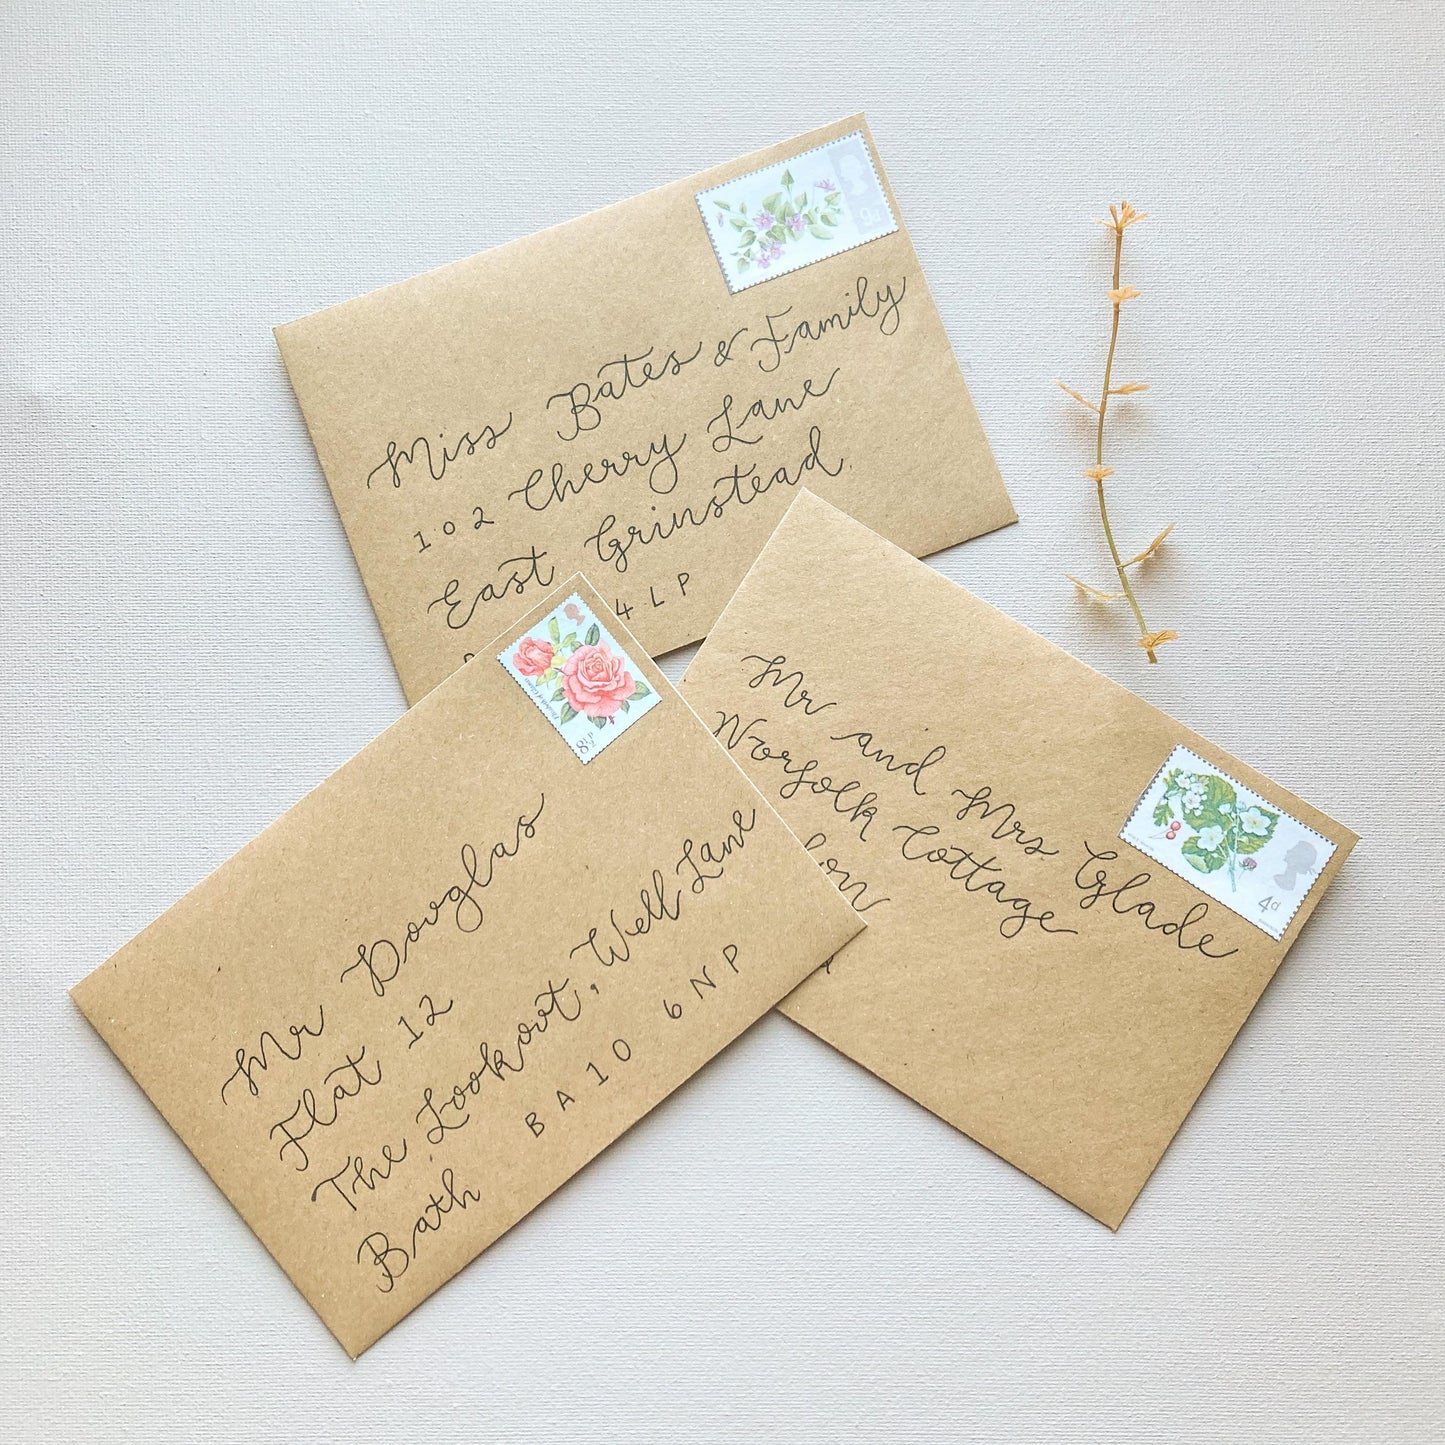 9d
Miss Bates & Family
102 Cherry Lane
East Grinstead
4LP
8½P
Mr Douglas
Flat 12
The Lookout, Well Lane
Bath BA10 6NP
Mr and Mrs Glade
Norfolk Cottage
4d